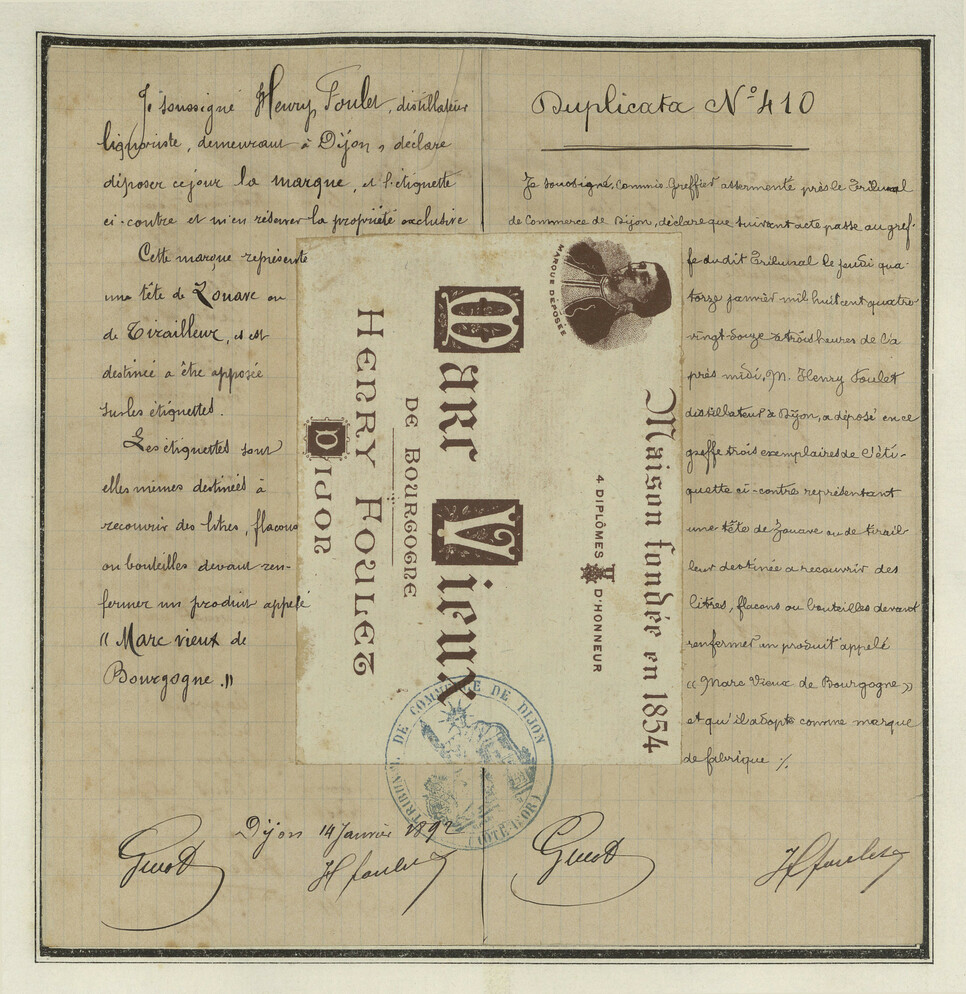 Je soussigné Henry Foulet, distillateur
liquoriste, demeurant à Dijon, déclare
déposer ce jour la marque, et l'étiquette
ci-contre et m'en réserver la propriété exclusive
Cette marque représente
une tête de Zouave ou
de Tirailleur, et est
destinée a être apposée
sur les étiquettes.
Les étiquettes sont
elles mêmes destinées à
recouvrir des litres, flacons
ou bouteilles devant ren-
fermer un produit appelé
« Marc vieux de
Bourgogne. »
Duplicata N° 410
Je soussigné, Commis Greffier assermenté près le Tribunal
de Commerce de Dijon, déclare que suivant acte passé au gref-
fe du dit Tribunal le jeudi qua
torze janvier mil huit cent quatre
vingt-douze à trois heures de l'a
près midi, M. Henry Foulet
distillateur à Dijon, a déposé en ce
greffe trois exemplaires de l'éti-
quette ci-contre représentant
une tête de Zouave ou de tirail
leur destinée a recouvrir des
litres, flacons ou bouteilles devant
renfermer un produit appelé
« Marc Vieux de Bourgogne »
et qu'il adopte comme marque
de fabrique ./.
MARQUE DÉPOSÉE
Maison fondée en 1854
4 DIPLÔMES D'HONNEUR
Marc Vieux
DE BOURGOGNE
HENRY FOULET
DIJON
TRIBUNAL DE COMMERCE DE DIJON
(CÔTE-D'OR)
Dijon 14 Janvier 1892
H foulet
H foulet